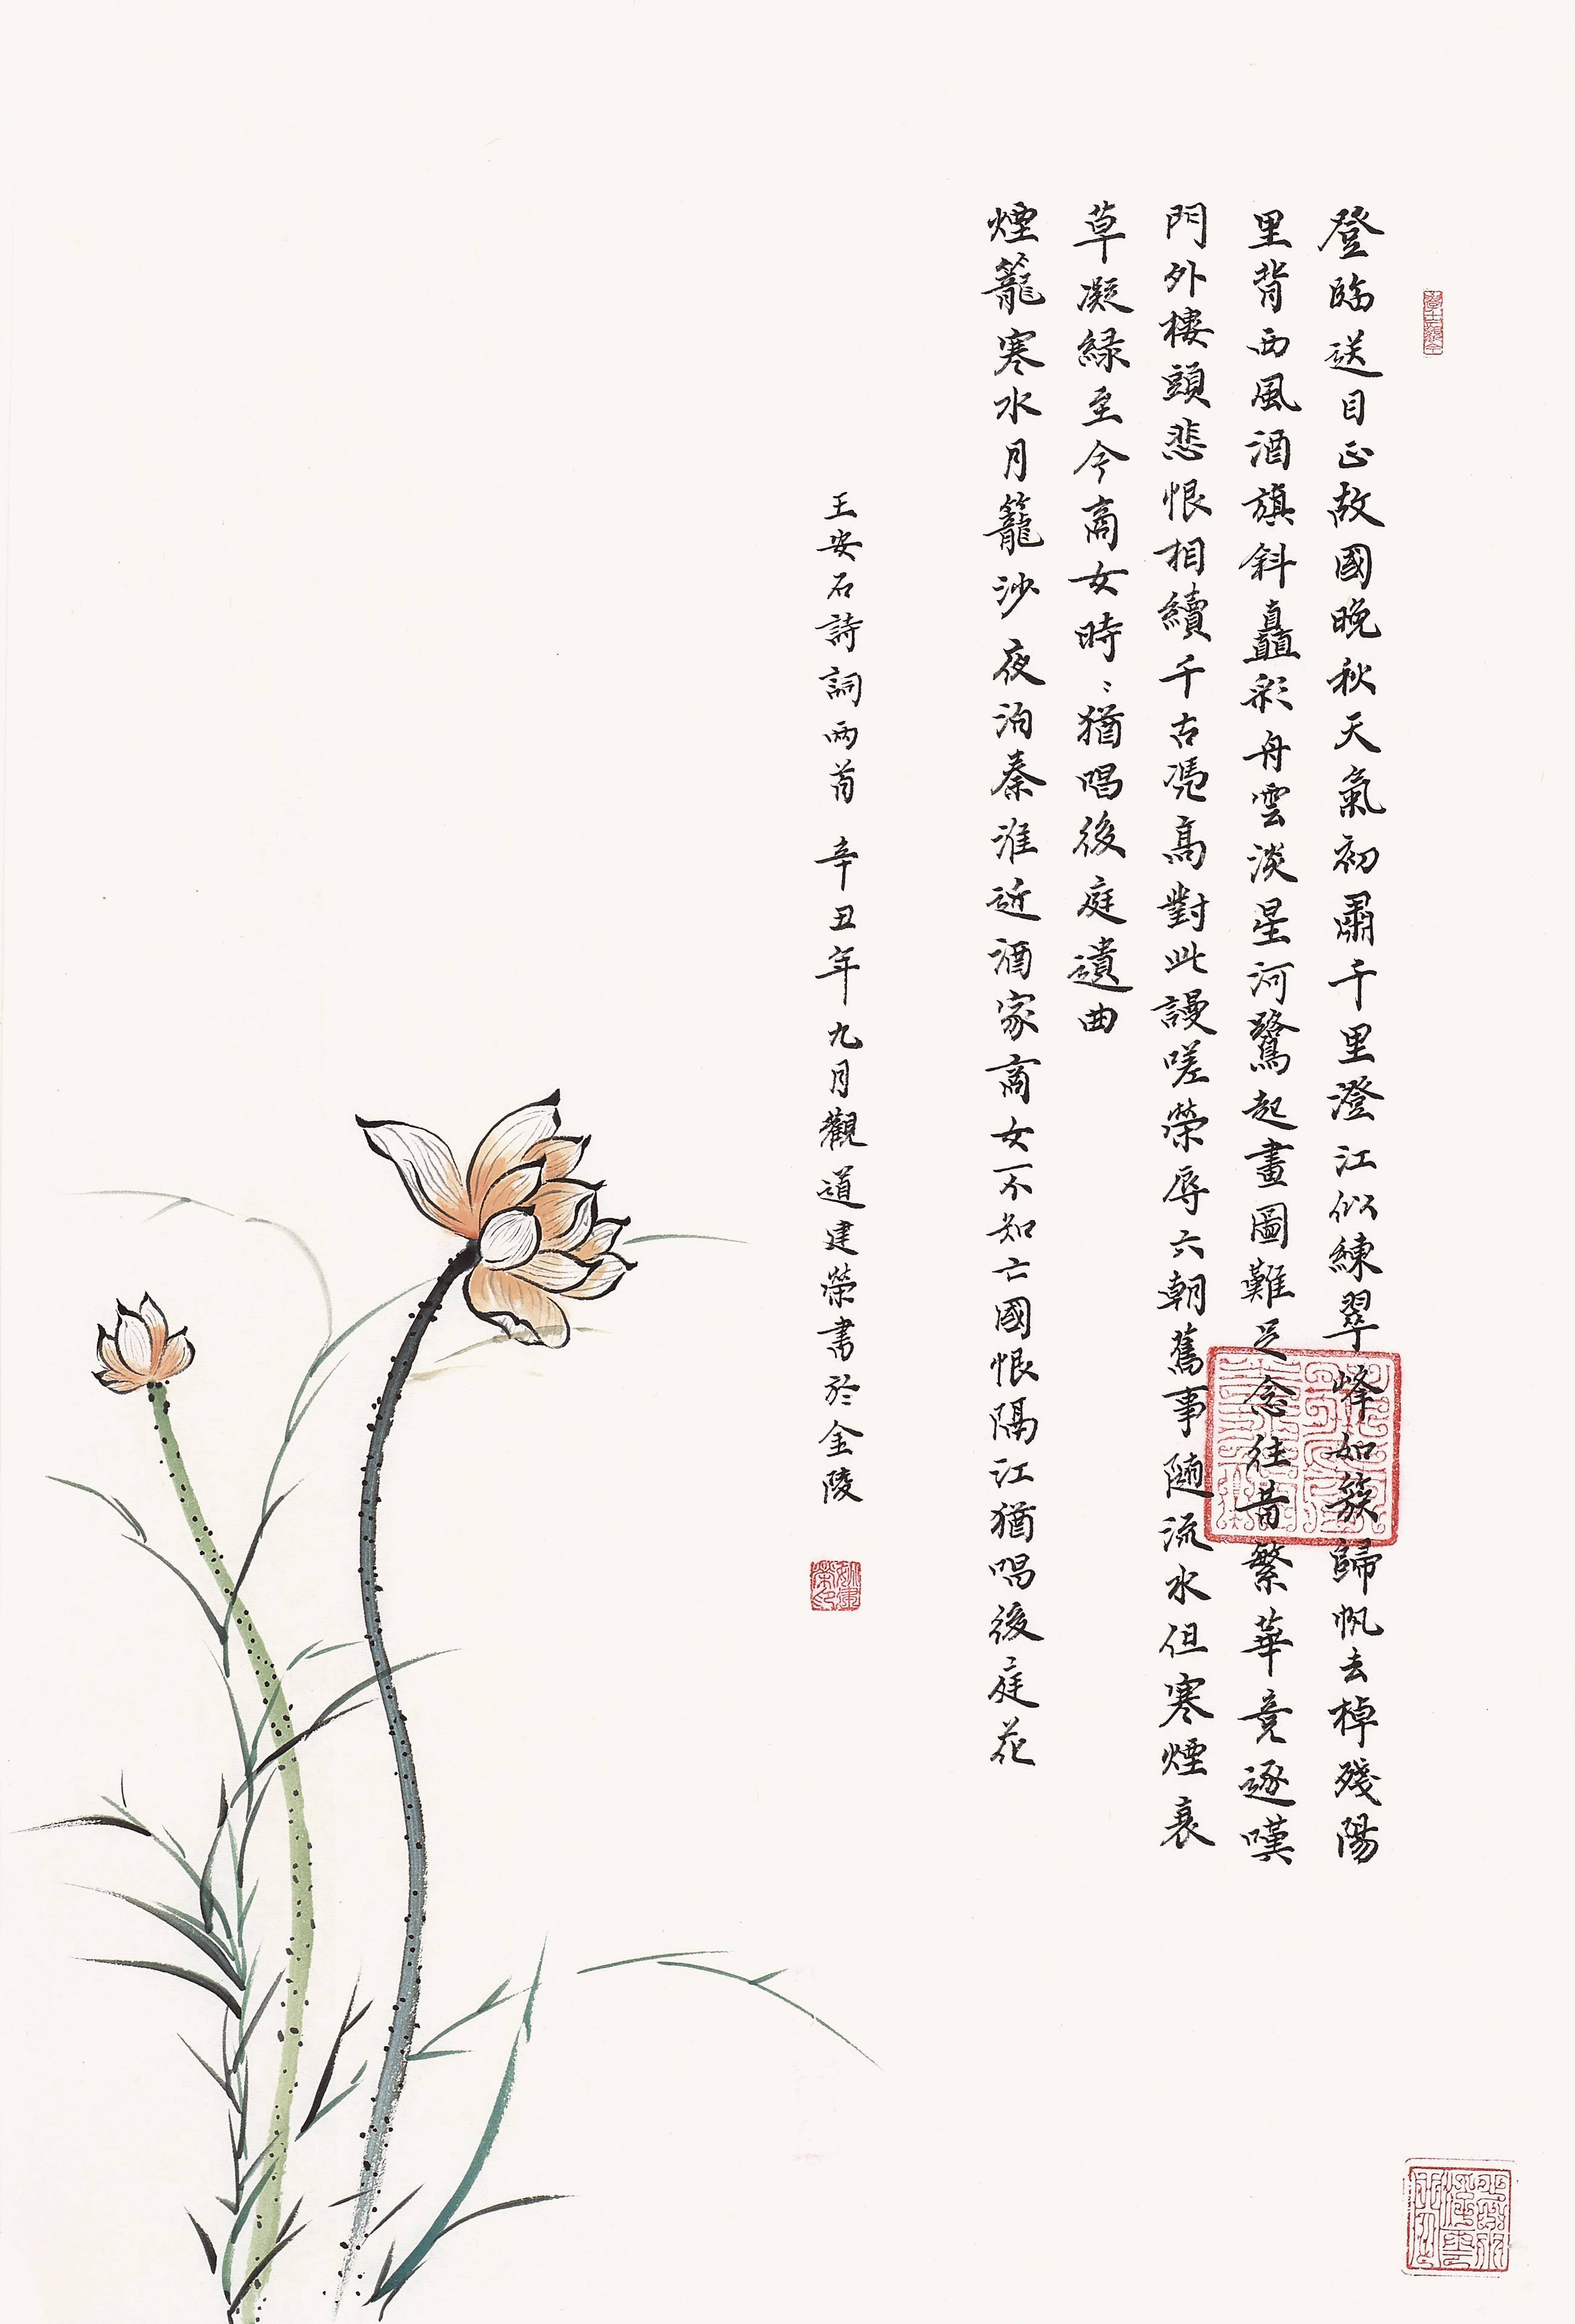 登臨送目正故國晚秋天氣初肅千里澄江似練翠峰如簇歸帆去棹殘陽
里背西風酒旗斜矗彩舟雲淡星河鷺起畫圖難足念往昔繁華竞逐嘆
門外樓頭悲恨相續千古憑高對此謾嗟榮辱六朝舊事隨流水但寒煙衰
草凝緑至今商女時〻猶唱後庭遺曲
煙籠寒水月籠沙夜泊秦淮近酒家商女不知亡國恨隔江猶唱後庭花
王安石詩詞兩首 辛丑年九月觀道建榮書於金陵